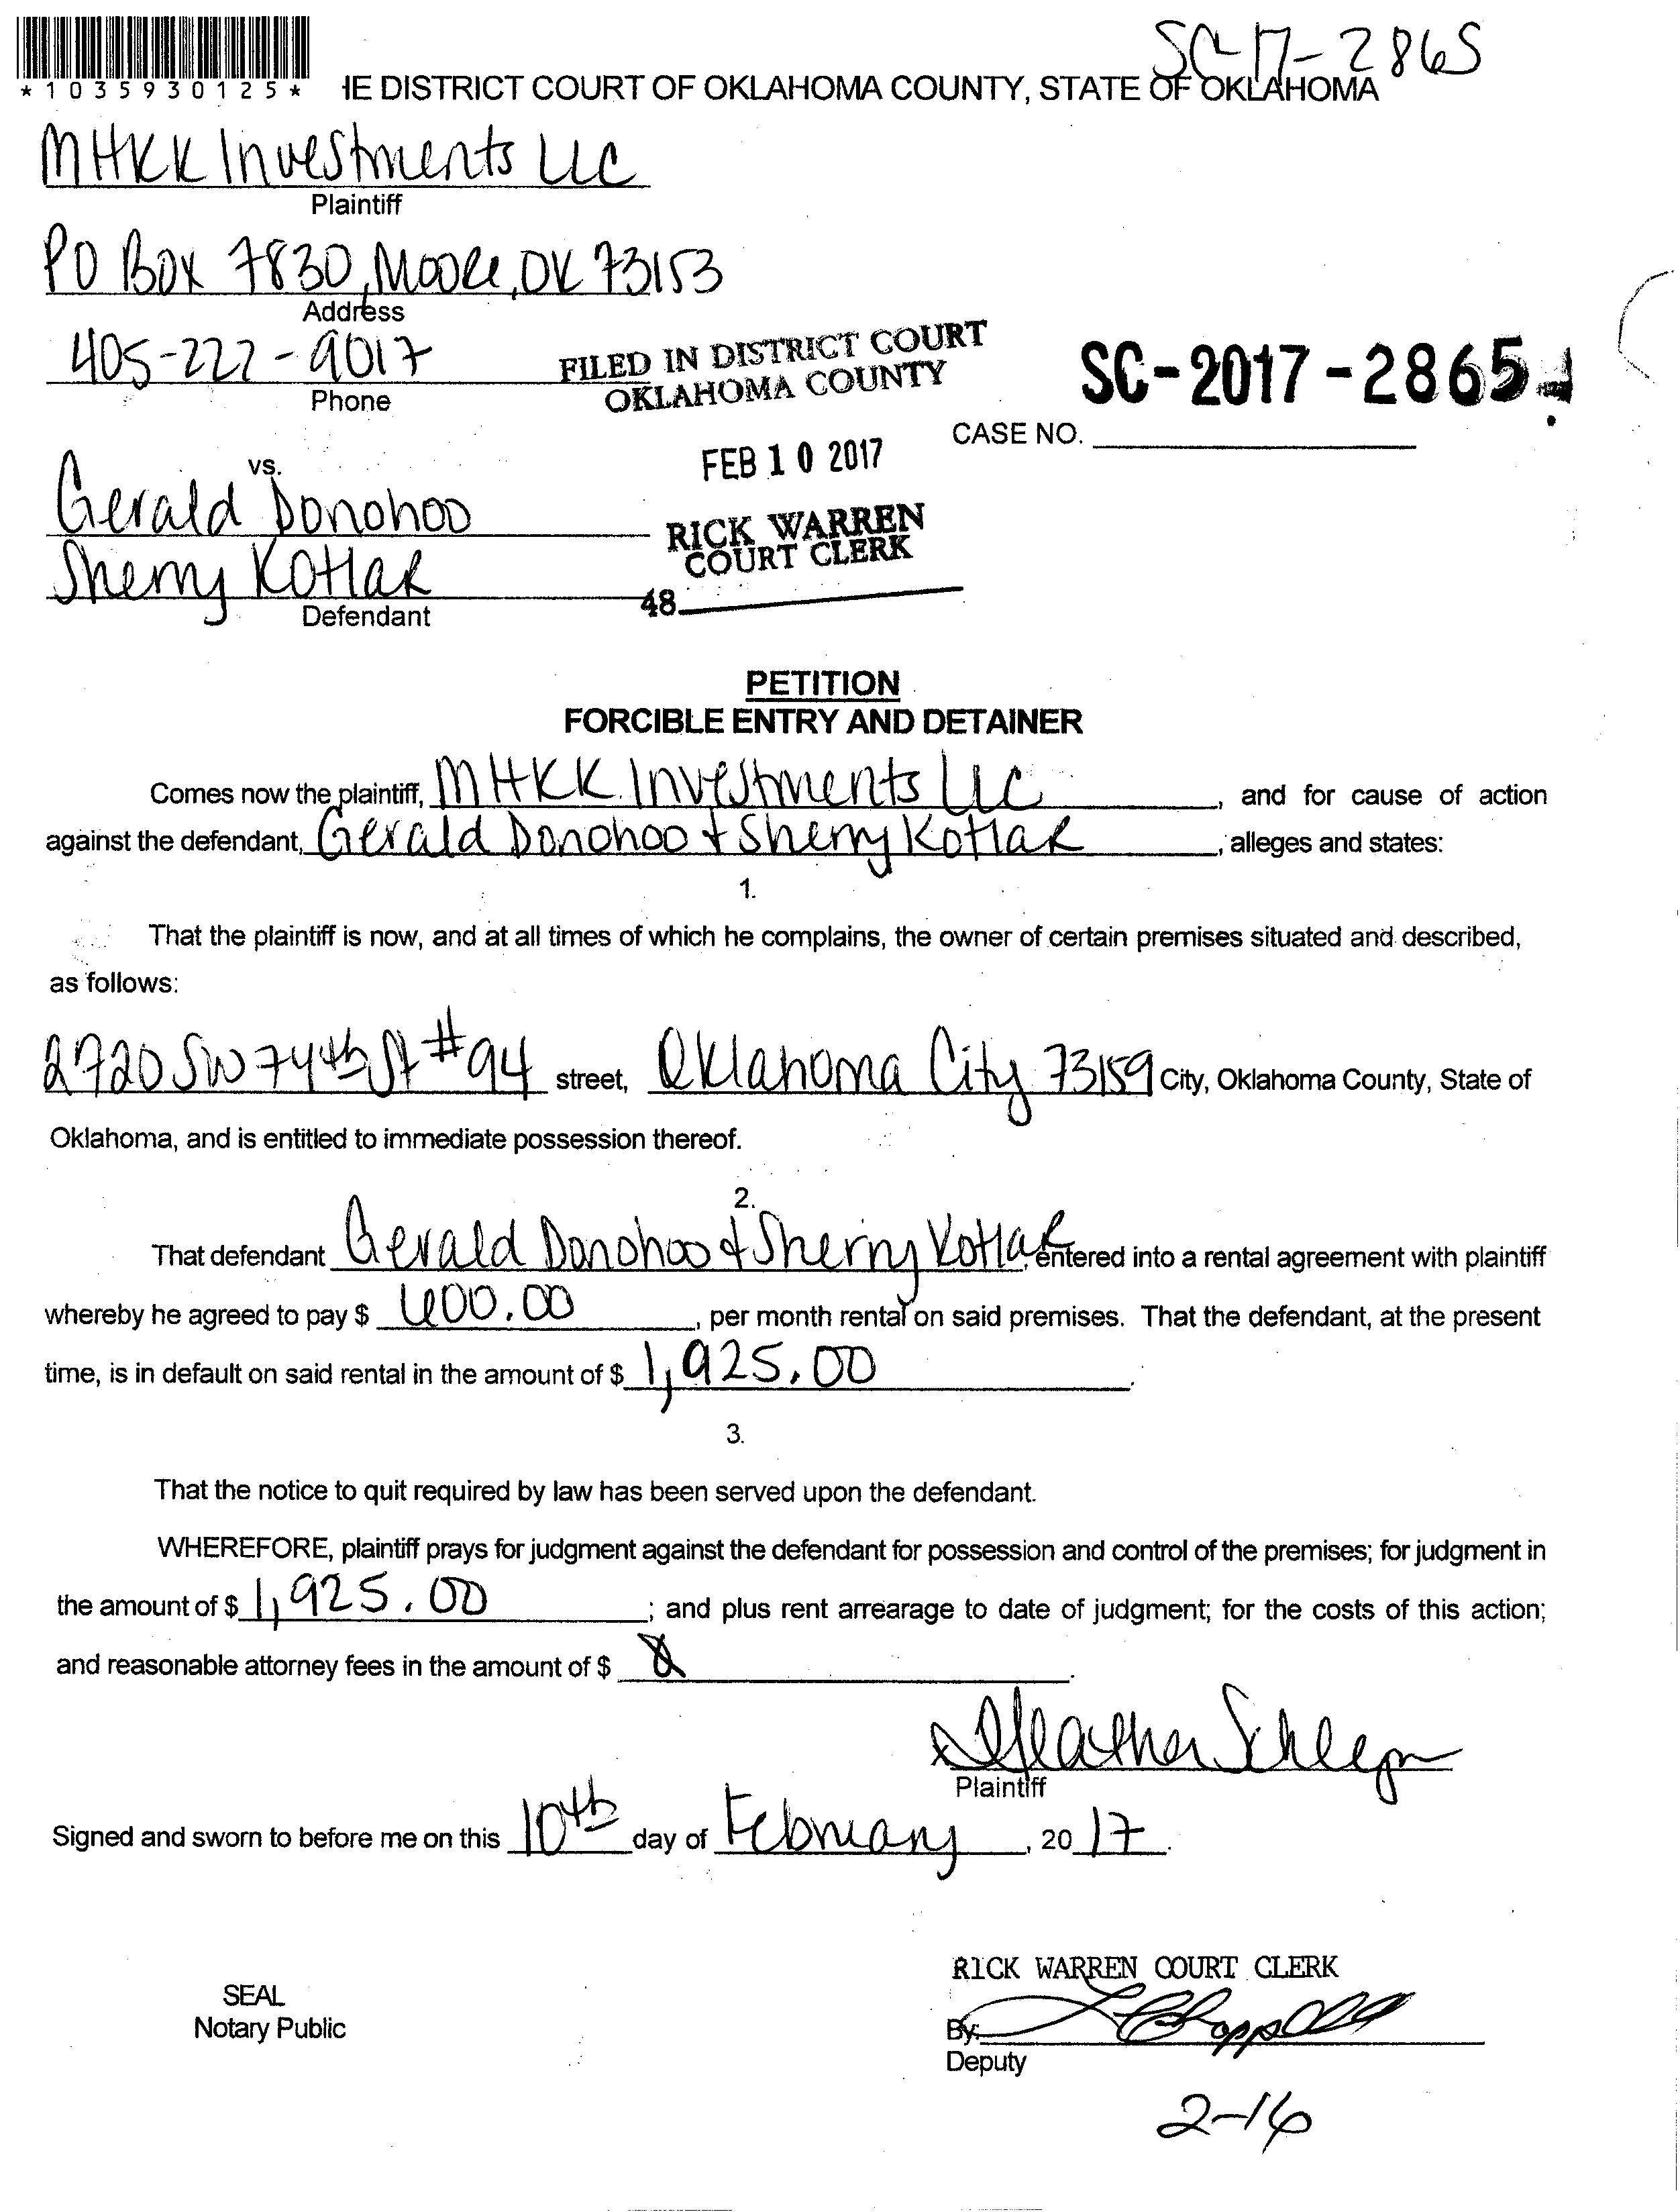 SC-17-2865
*1035930125* IE DISTRICT COURT OF OKLAHOMA COUNTY, STATE OF OKLAHOMA
MHKK Investments LLC
Plaintiff
PO Box 7830, Moore, OK 73153
Address
405-222-9017
Phone
FILED IN DISTRICT COURT
OKLAHOMA COUNTY
SC-2017-2865
CASE NO.
FEB 10 2017
vs.
Gerald Donohoo
RICK WARREN
COURT CLERK
Sherry Kotlar
48
Defendant
PETITION
FORCIBLE ENTRY AND DETAINER
Comes now the plaintiff, MHKK Investments LLC, and for cause of action
against the defendant, Gerald Donohoo + Sherry Kotlar, alleges and states:
1.
That the plaintiff is now, and at all times of which he complains, the owner of certain premises situated and described,
as follows:
2720 SW 74th St #94 street, Oklahoma City 73159 City, Oklahoma County, State of
Oklahoma, and is entitled to immediate possession thereof.
2.
That defendant Gerald Donohoo + Sherry Kotlar, entered into a rental agreement with plaintiff
whereby he agreed to pay $ 600.00, per month rental on said premises. That the defendant, at the present
time, is in default on said rental in the amount of $ 1,925.00.
3.
That the notice to quit required by law has been served upon the defendant.
WHEREFORE, plaintiff prays for judgment against the defendant for possession and control of the premises; for judgment in
the amount of $ 1,925.00; and plus rent arrearage to date of judgment; for the costs of this action;
and reasonable attorney fees in the amount of $.
x Heather
Plaintiff
Signed and sworn to before me on this 10th day of February, 2017.
RICK WARREN COURT CLERK
SEAL
Notary Public
By:
Deputy
2-16